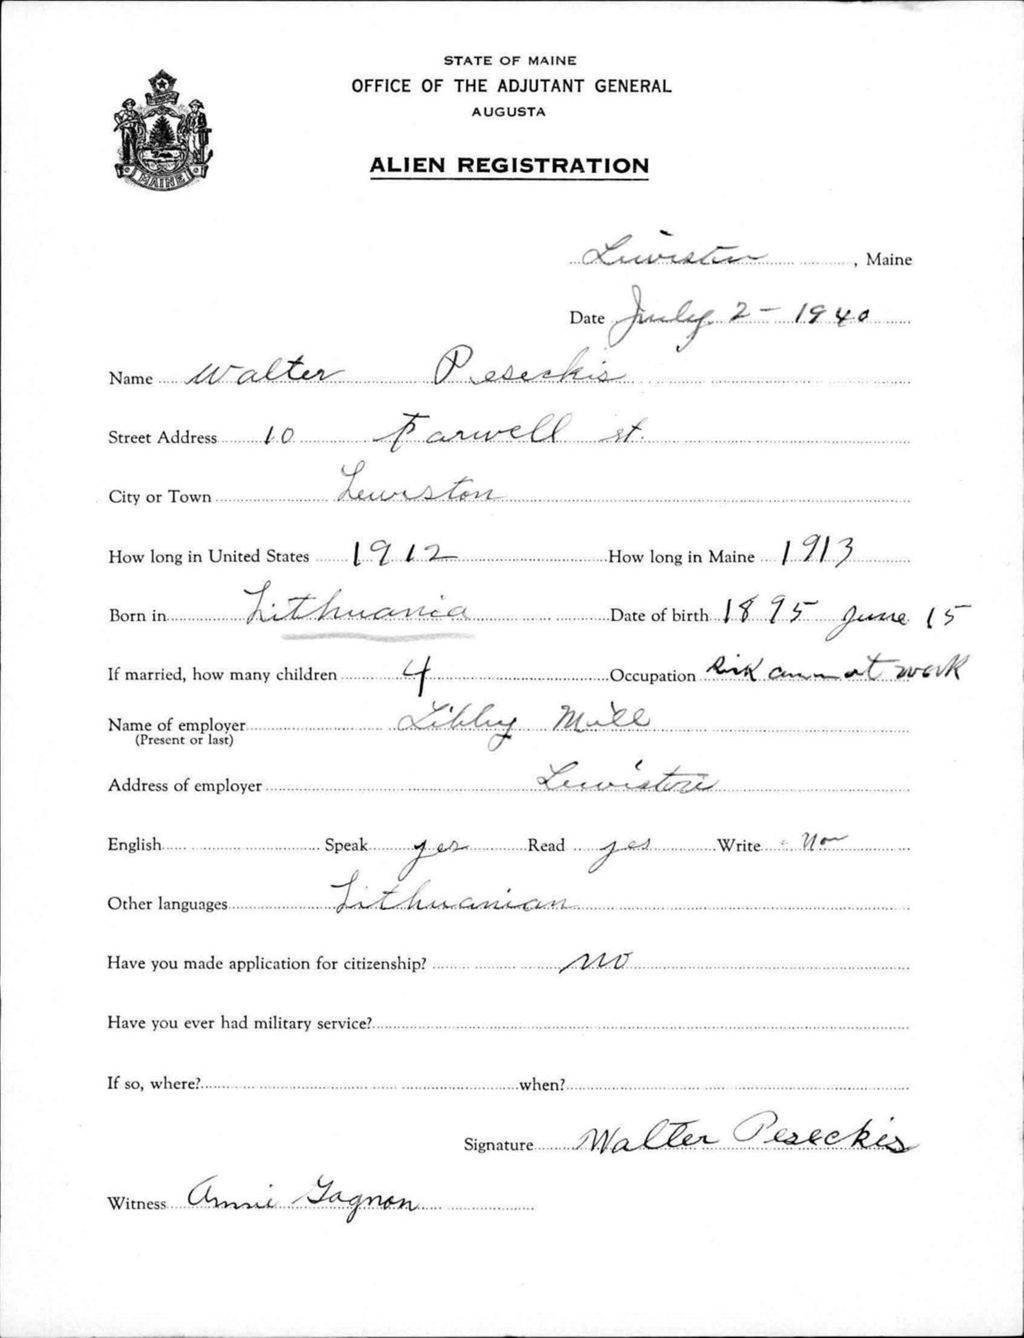 STATE OF MAINE
OFFICE OF THE ADJUTANT GENERAL
AUGUSTA
MAINE
ALIEN REGISTRATION
Lewiston, Maine
Date July 2 - 1940
Name Walter Peseckis
Street Address 10 Farwell st.
City or Town Lewiston
How long in United States 1912 How long in Maine 1913
Born in Lithuania Date of birth 1895 June 15
If married, how many children 4 Occupation at work
Name of employer Libby Mill
(Present or last)
Address of employer Lewiston
English Speak yes Read yes Write
Other languages Lithuanian
Have you made application for citizenship? no
Have you ever had military service?
If so, where? when?
Signature Walter Peseckis
Witness Annie Gagnon